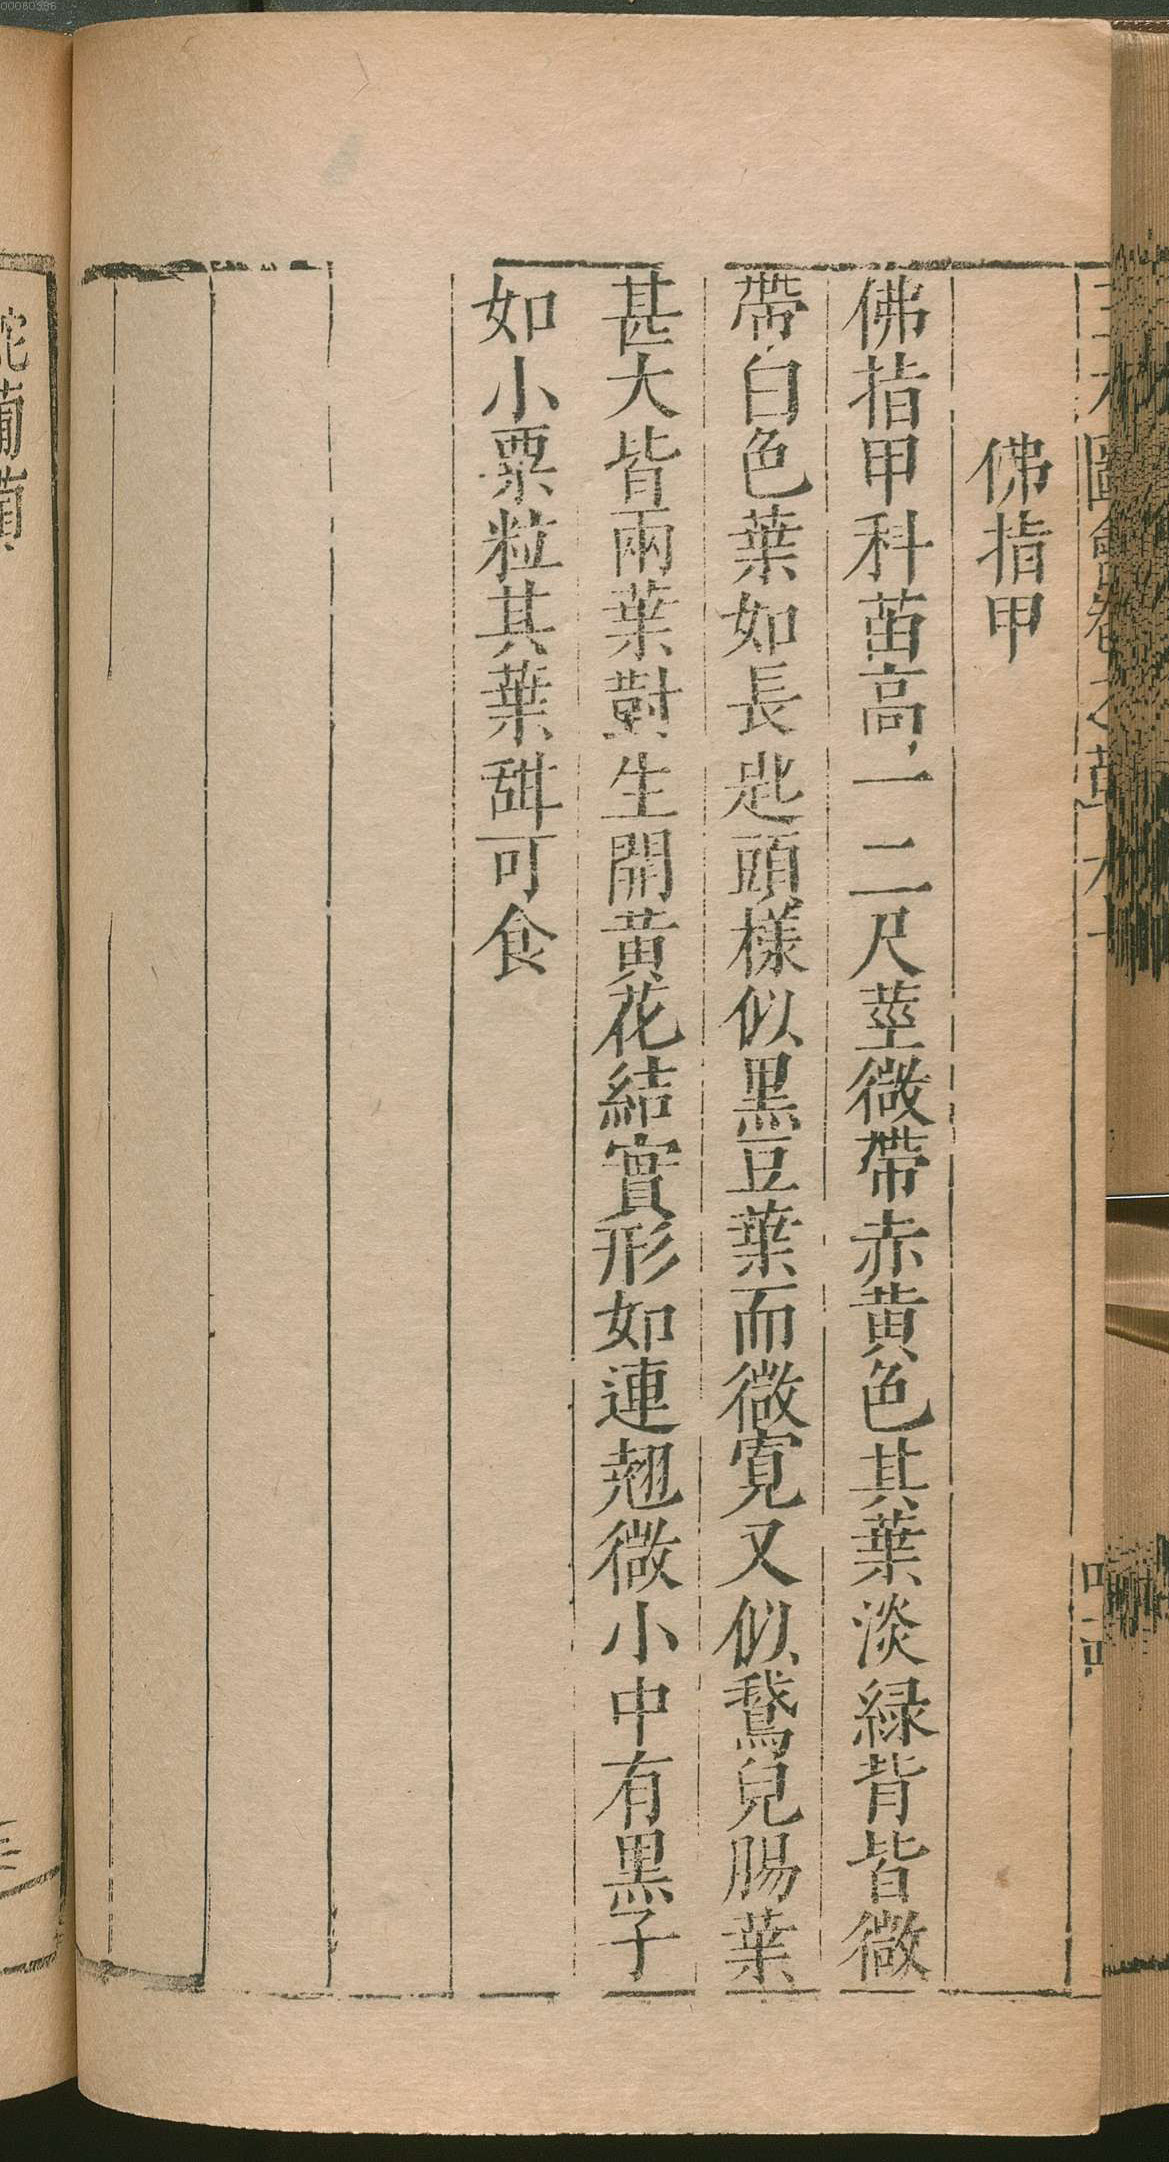 00080306
佛指甲
佛指甲科苗高一二尺莖微帶赤黃色其葉淡綠背皆微
帶白色葉如長匙頭樣似黑豆葉而微寬又似鵞兒腸葉
甚大皆兩葉對生開黃花結實形如連翹微小中有黑子
如小粟粒其葉甜可食
葡萄